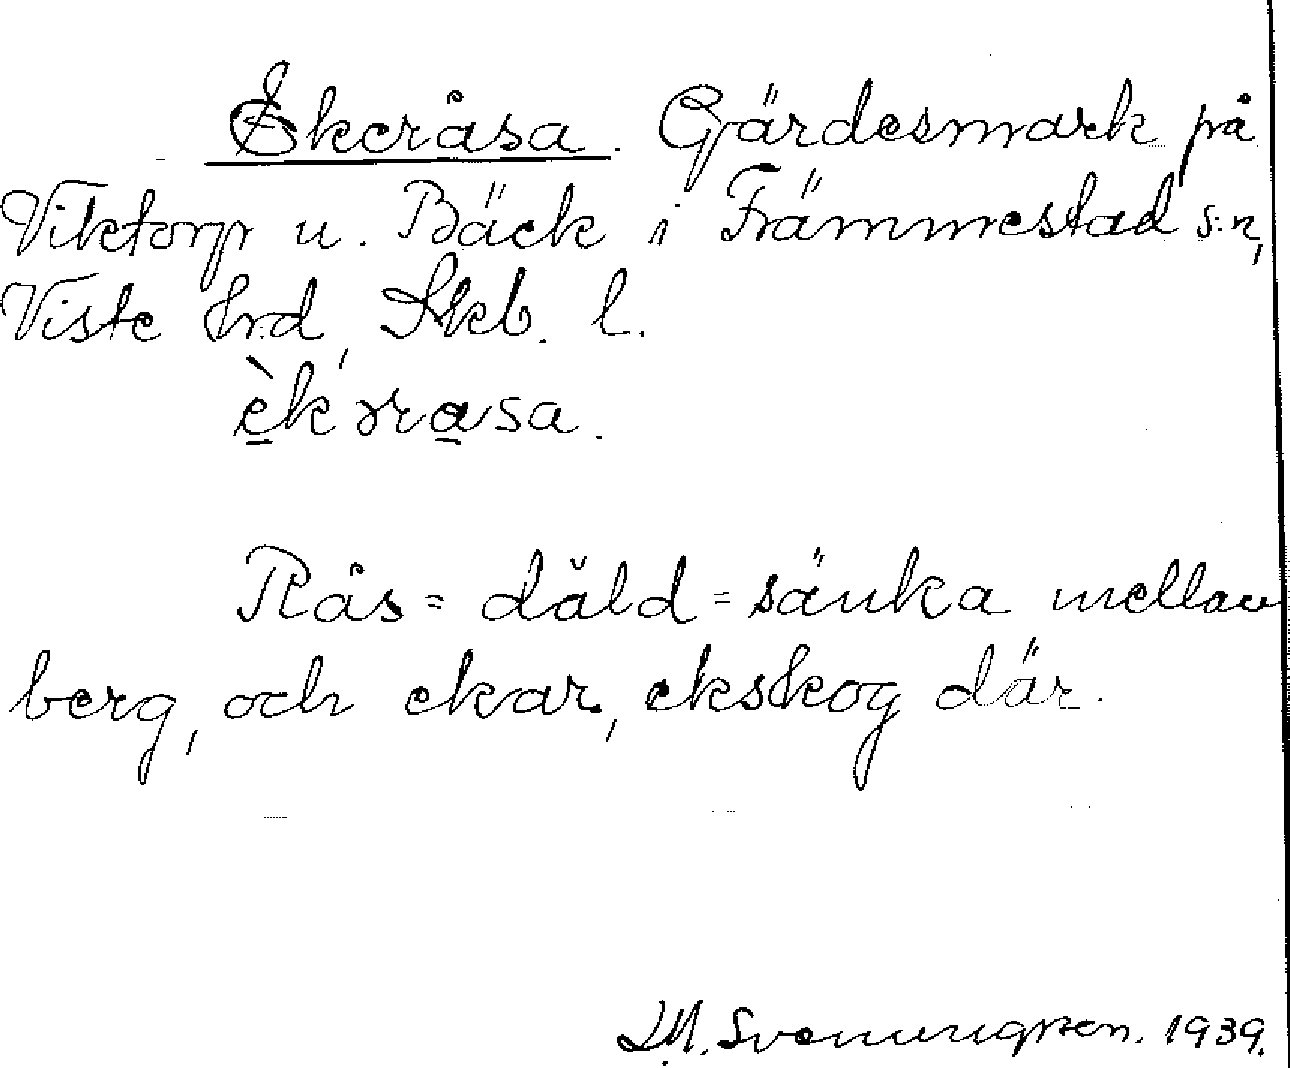 Ekeråsa. Gärdesmark på
Viketorp u. Bäck i Främmestad s:n,
Viste hrd, Skb. l.
Rås = däld = sänka mellan
berg, och ekar, ekskog där.
Svenungsson. 1939.